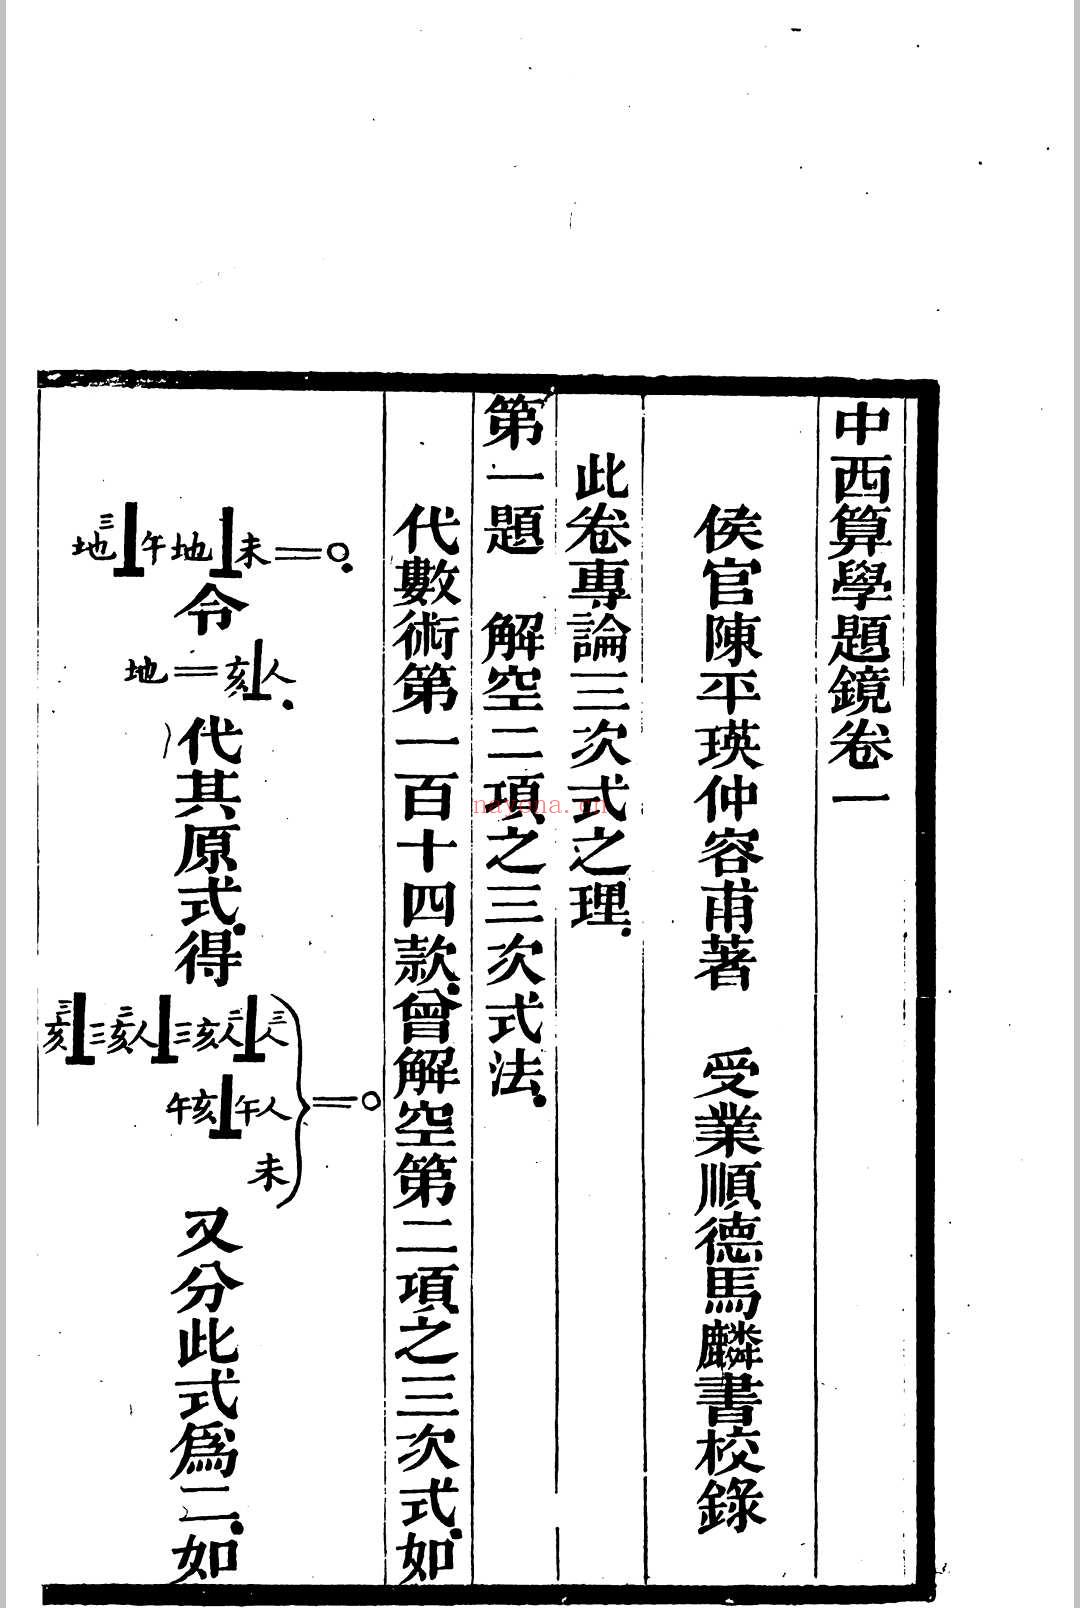 中西算學題鏡卷一
侯官陳平瑛仲容甫著　受業順德馬麟書校錄
此卷專論三次式之理.
第一題　解空二項之三次式法.
代數術第一百十四款.曾解空第二項之三次式.如
地三⊥午地⊥未＝○.
令
地＝亥⊥人.
代其原式.得
亥三⊥三亥二人⊥三亥人二⊥人三
午亥⊥午人
未
＝○
又分此式爲二.如
nayona.cn